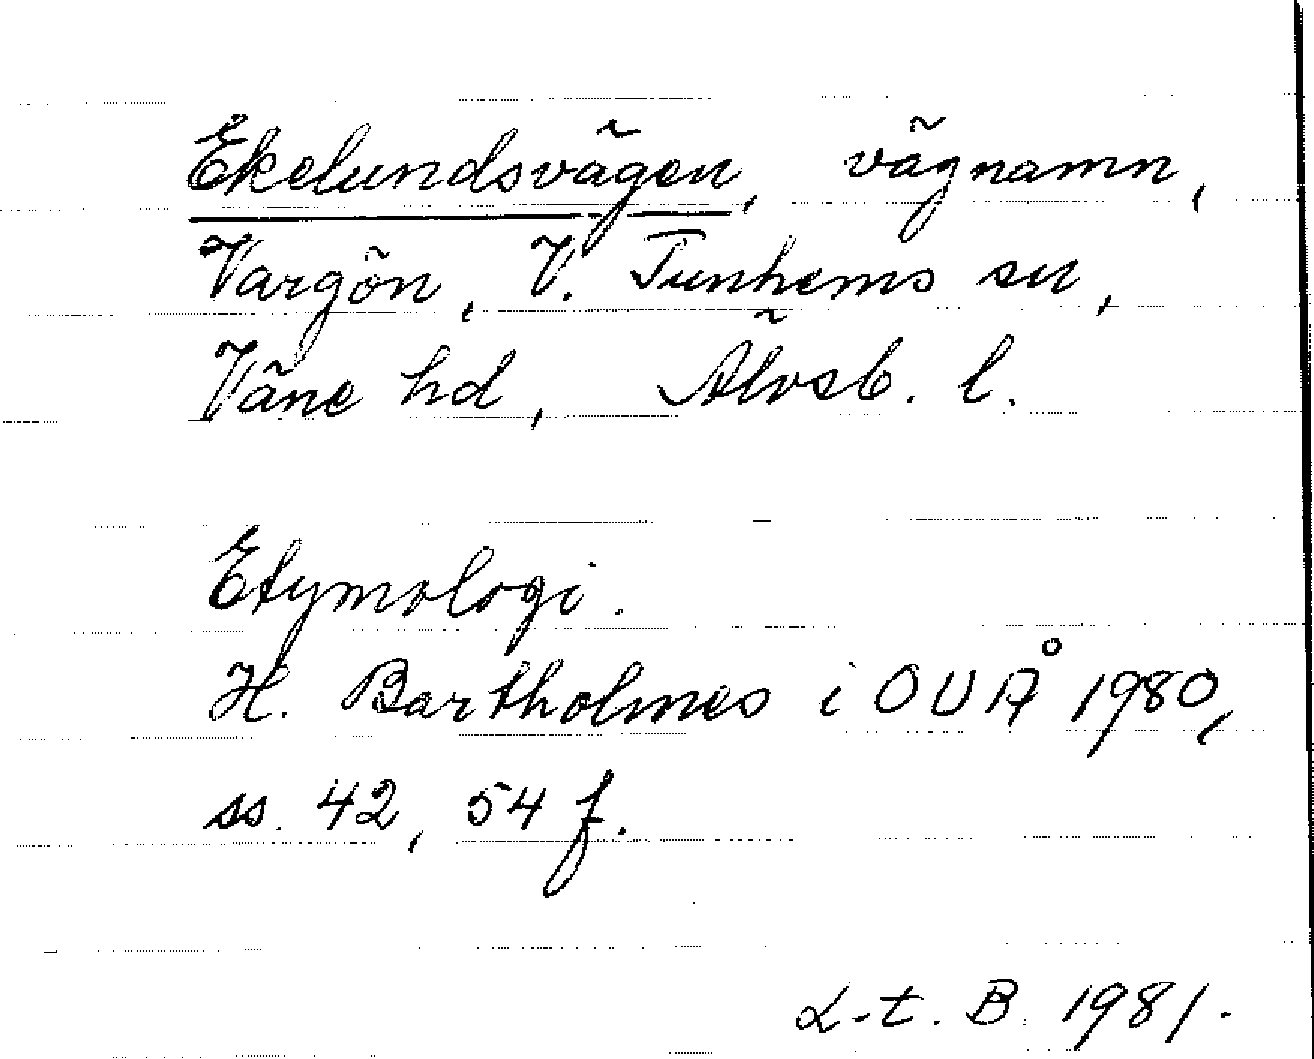 Ekelundsvägen, vägnamn,
Vargön, V. Tunhems sn,
Väne hd, Älvsb. l.
Etymologi.
H. Bartholmes i OUÅ 1980,
ss. 42, 54 f.
L-t. B. 1981.